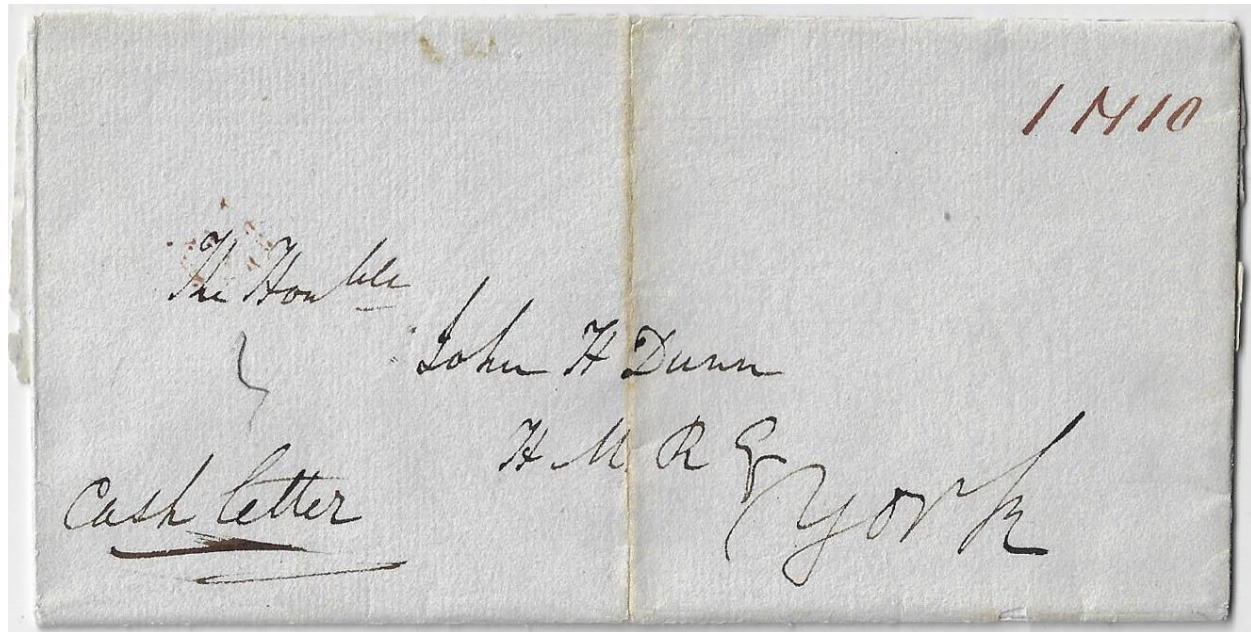 1 N 10
The Honble
John H Dunn
H M R G
York
Cash letter